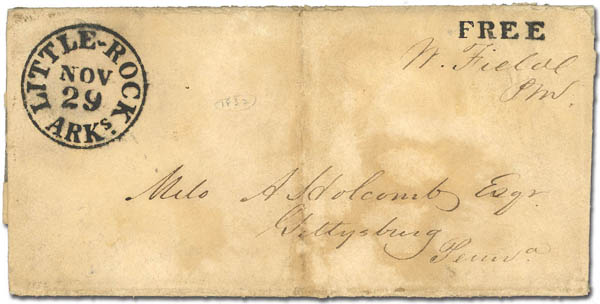 LITTLE-ROCK
NOV
29
ARKs.
FREE
W. Field
P.M.
Milo A Holcomb Esqr.
Gettysburg
Pennª